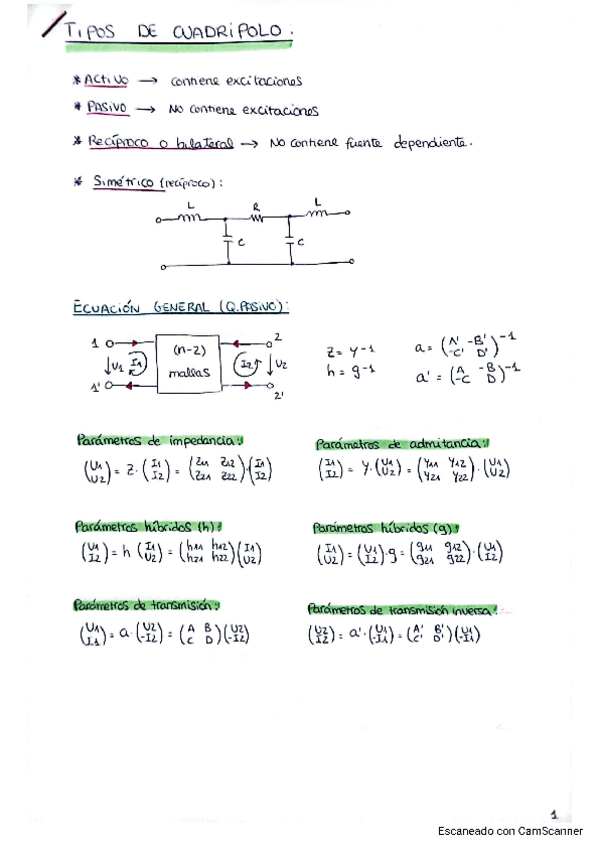 TIPOS DE CUADRIPOLO:
* ACTIVO → contiene excitaciones
* PASIVO → No contiene excitaciones
* Recíproco o bilateral → No contiene fuente dependiente.
* Simétrico (recíproco):
L R L
C C
ECUACIÓN GENERAL (Q.PASIVO):
1 U1 I1 (n-2) mallas I2 U2 2
1' 2'
z = y-1
h = g-1
a = (A' -B' -C' D')-1
a' = (A -B -C D)-1
Parámetros de impedancia:
(U1 U2) = z · (I1 I2) = (Z11 Z12 Z21 Z22) · (I1 I2)
Parámetros de admitancia:
(I1 I2) = y · (U1 U2) = (y11 y12 y21 y22) · (U1 U2)
Parámetros híbridos (h):
(U1 I2) = h (I1 U2) = (h11 h12 h21 h22) (I1 U2)
Parámetros híbridos (g):
(I1 U2) = (U1 I2) · g = (g11 g12 g21 g22) · (U1 I2)
Parámetros de transmisión:
(U1 I1) = a · (U2 -I2) = (A B C D) (U2 -I2)
Parámetros de transmisión inversa:
(U2 I2) = a' · (U1 -I1) = (A' B' C' D') (U1 -I1)
1
Escaneado con CamScanner